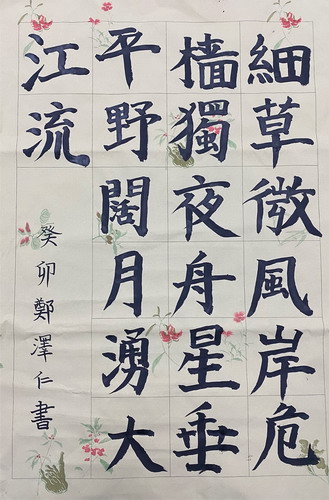 細草微風岸危
樯獨夜舟星垂
平野闊月湧大
江流
癸卯鄭澤仁書